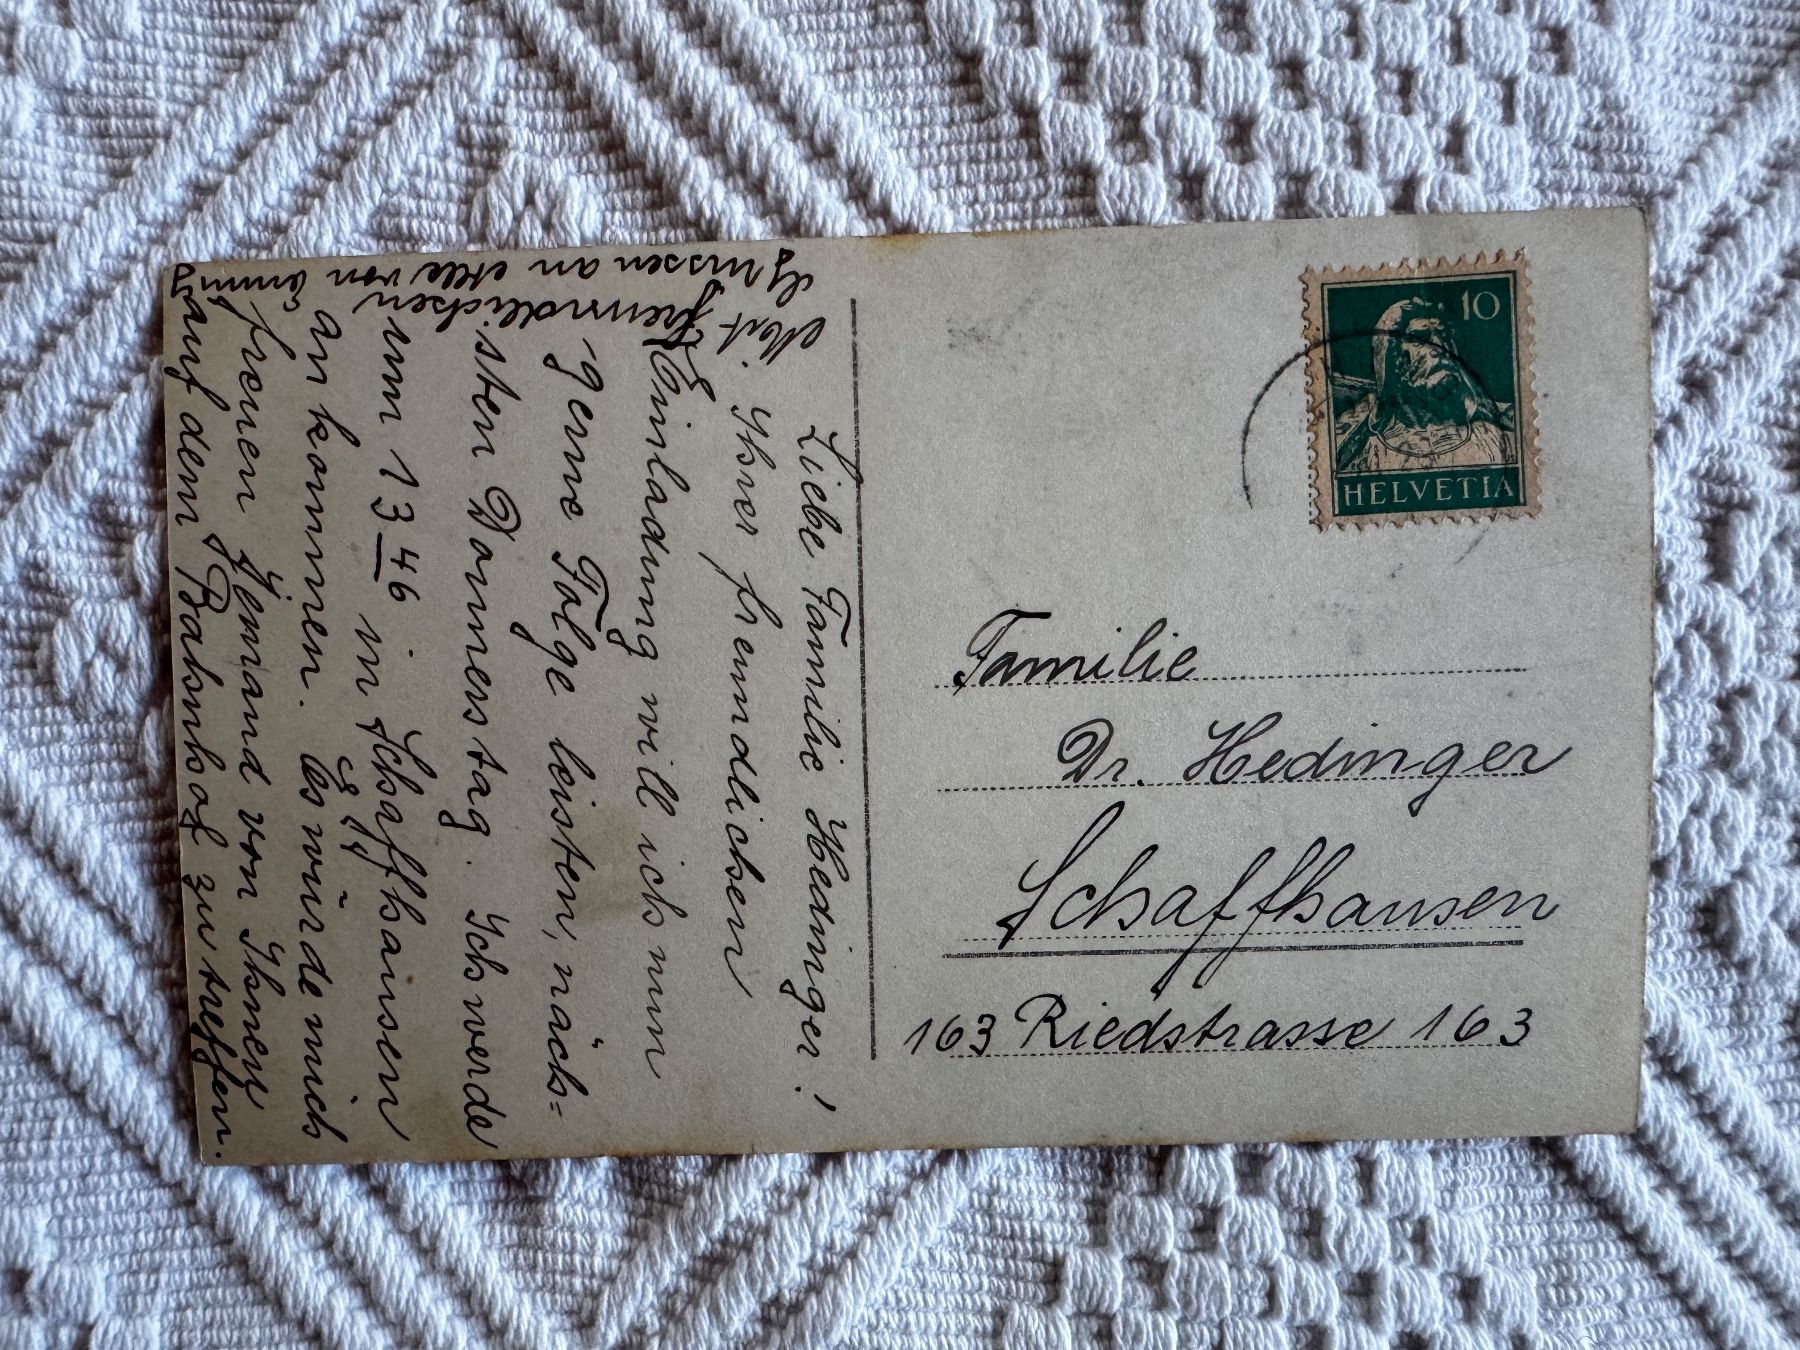 Liebe Familie Hedinger!
Ihrer freundlichen
Einladung will ich nun
gerne Folge leisten, näch=
sten Donnerstag. Ich werde
um 13 46 in Schaffhausen
ankommen. Es würde mich
freuen Jemand von Ihnen
auf dem Bahnhof zu treffen.
Mit freundlichen
Grüssen an alle von
10
HELVETIA
Familie
Dr. Hedinger
Schaffhausen
163 Riedstrasse 163